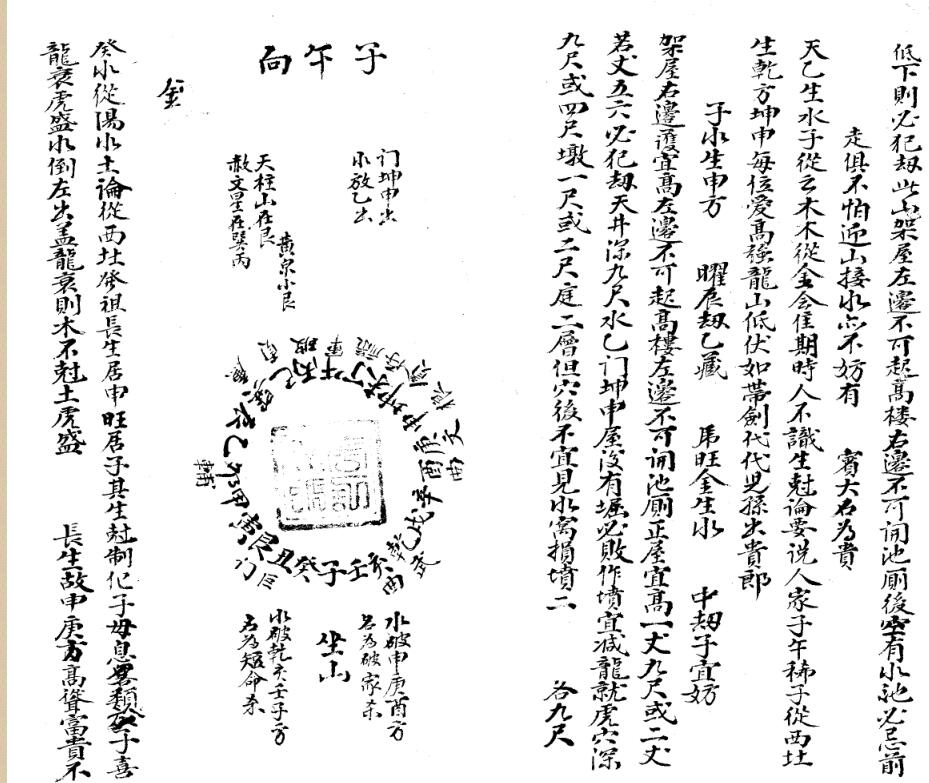 低下則必犯劫此山架屋左邊不可起高楼右邊不可開池厠後空有水池必忌前
走俱不怕近山接水亦不妨有　賓大名為貴
天乙生水子從云木木從金会佳期時人不識生尅論要说人家子午稀子從西北
生乾方坤申每位爱高強龍山低伏如帶劍代代児孫出貴郎
子水生申方　曜辰劫乙藏　帛旺金生水　中劫子宜妨
架屋右邊護宜高左邊不可起高樓左邊不可開池厠正屋宜高一丈九尺或二丈
若丈五六必犯劫天井深九尺水乙门坤申屋沒有堀必敗作墳宜減龍就虎穴深
九尺或四尺墩一尺或二尺庭二層但穴後不宜見水窩損墳二　各九尺
子午向
门坤申出
水放乙出
黄泉水艮
天柱山在艮
赦文星在巽丙
水破申庚酉方
名為破家杀
坐山
水破乾亥壬子方
名為短命杀
子癸丑艮寅甲卯乙辰
丙午丁未坤申庚酉辛戌乾亥壬
輔
武
金
癸水從陽水土論從西北發祖長生居申旺居子其生尅制化子母息畧類於子喜
龍衰虎盛水倒左出盖龍衰則木不尅土虎盛　長生故申庚方高聳富貴不